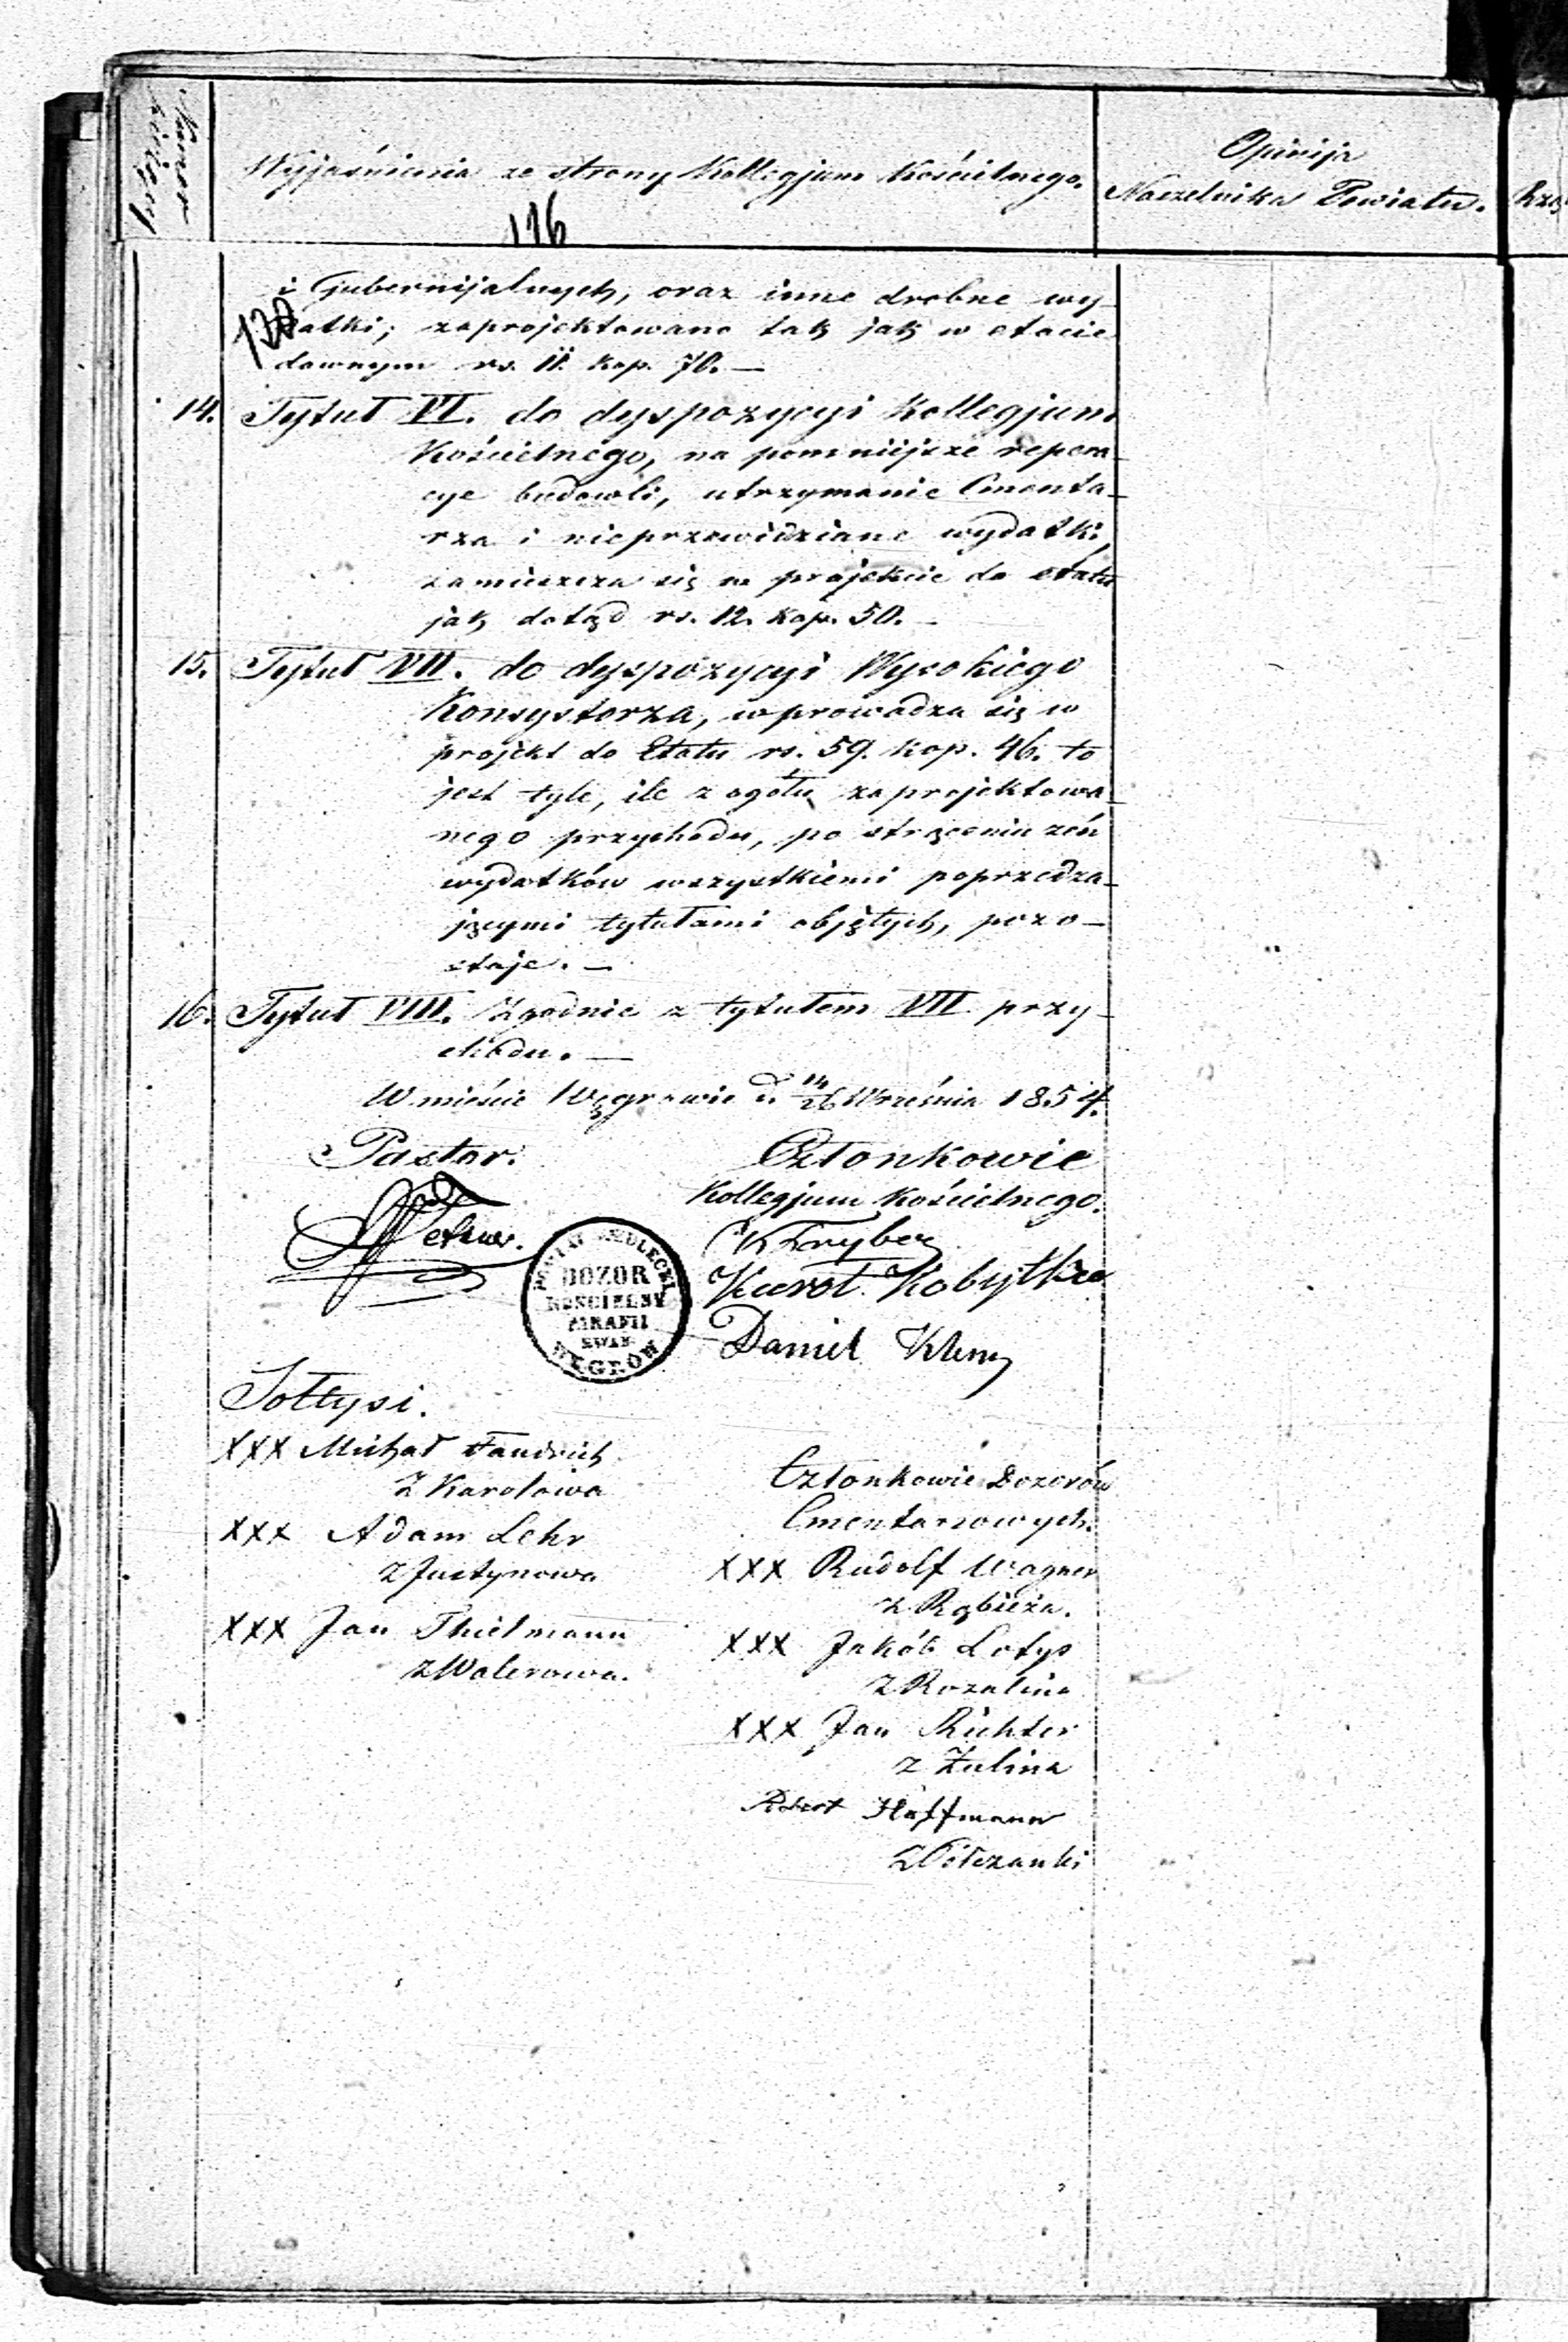 Numer kolejny
Wyjaśnienia ze strony Kollegjum Kościelnego.
116
Opinija
Naczelnika Powiatu.
i Gubernijalnych, oraz inne drobne wy-
datki; zaprojektowano tak jak w etacie
dawnym rs. 11. kop. 70. —
14. Tytuł VI. do dyspozycyi Kollegjum
Kościelnego, na pomniejsze repera-
cye budowli, utrzymanie Cmenta-
rza i nieprzewidziane wydatki,
zamieszcza się w projekcie do etatu
jak dotąd rs. 12. kop. 50. —
15. Tytuł VII. do dyspozycyi Wysokiego
Konsystorza, wprowadza się w
projekt do Etatu rs. 59. kop. 46. to
jest tyle, ile z ogółu zaprojektowa-
nego przychodu, po strąceniu zeń
wydatków wszystkiemi poprzedza-
jącymi tytułami objętych, pozo-
staje. —
16. Tytuł VIII. Zgodnie z tytułem VII przy-
chodu. —
W mieście Węgrowie d. 14/26 Września 1854.
Pastor.
Członkowie
Kollegjum Kościelnego.
Karol Kobyłko
Daniel
POWIAT SIEDLECKI
DOZOR
KOŚCIELNY
PARAFII
EWAN
WĘGRÓW
Sołtysi.
XXX Michał Fandrich
z Karolowa
XXX Adam Lehr
z Justynowa
XXX Jan Thielmann
z Walerowa.
Członkowie Dozorów
Cmentarzowych.
XXX Rudolf Wagner
z Rąbieża.
XXX Jakób Lotys
z Rozalina
XXX Jan Richter
z Żulina
Robert Hoffmann